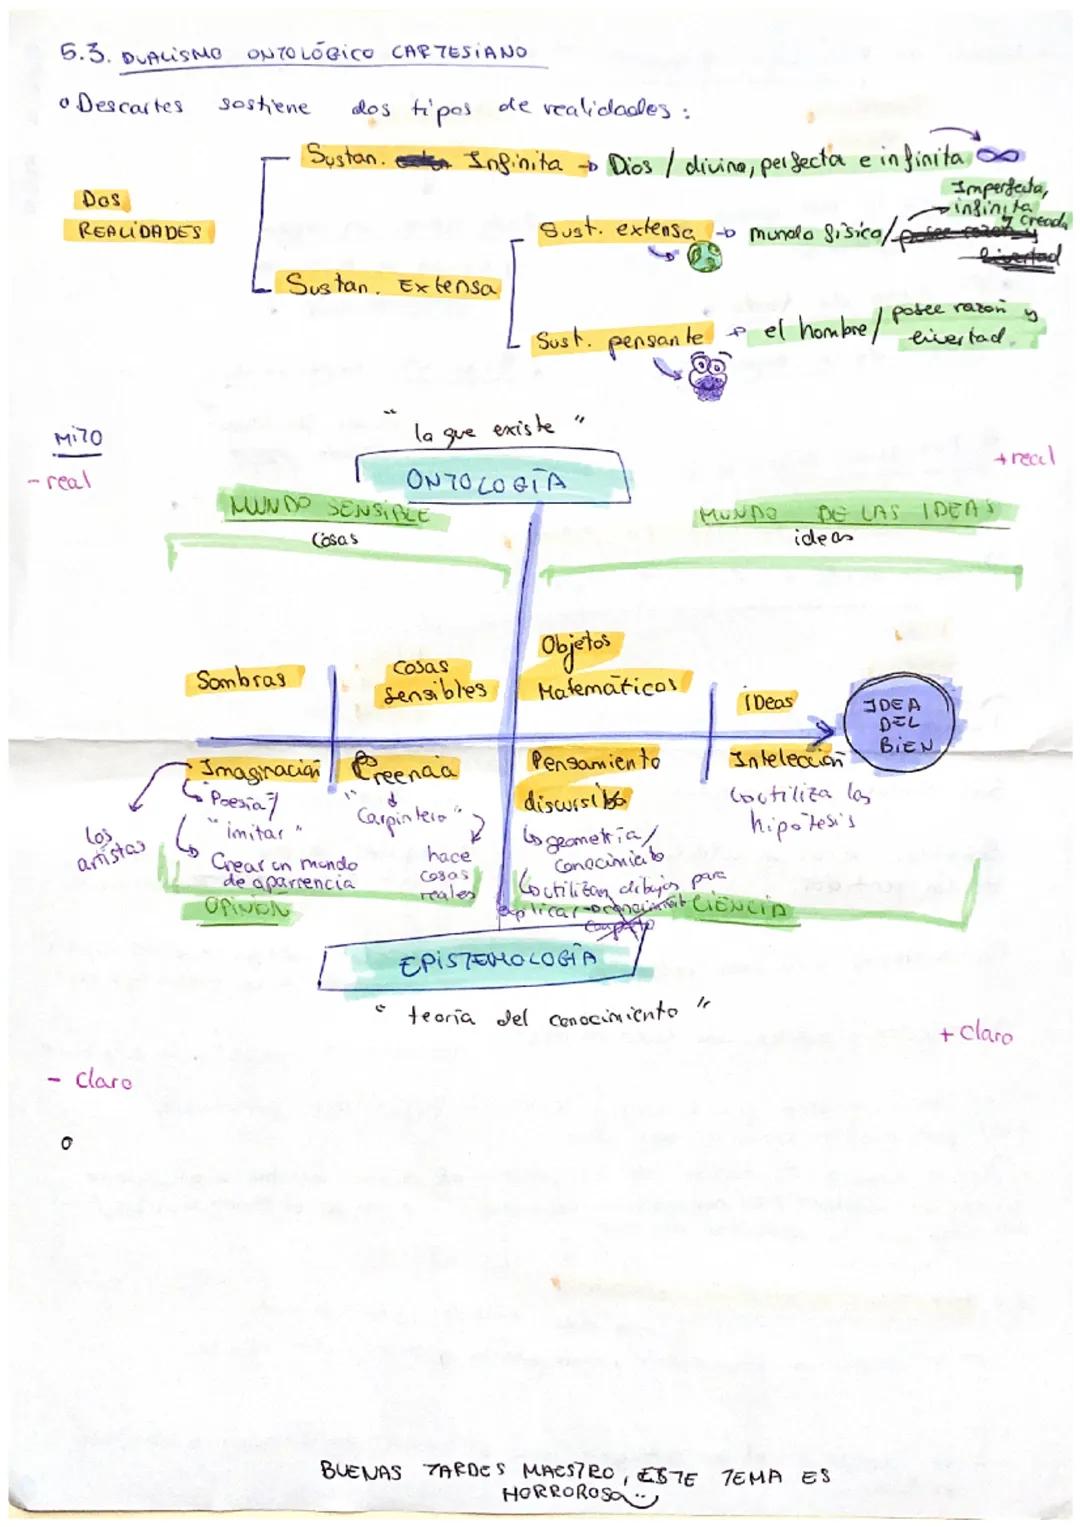 5.3. DUALISMO ONTOLÓGICO CARTESIANO
o Descartes sostiene dos tipos de realidades:
Sustan. Infinita → Dios / divina, perfecta e infinita ∞
Dos
REALIDADES
Imperfecta,
infinita
y creada
Sust. extensa → mundo físico/
Sustan. Extensa
Sust. pensante → el hombre/ posee razón y
livertad.
MITO
"la que existe"
- real
+ real
ONTOLOGÍA
MUNDO SENSIBLE
Cosas
MUNDO DE LAS IDEAS
ideas
Sombras
Cosas
sensibles
Objetos
Matemáticos
IDeas
IDEA
DEL
BIEN
Imaginación
Creencia
Pensamiento
discursibo
Intelección
Poesía/
"imitar"
Crear un mundo
de aparrencia
los
artistas
"Carpintero"
hace
cosas
reales
geometría/
Conocimiento
utilizan dibujos para
explicar
utiliza las
hipótesis
OPINÓN
CIENCIA
EPISTEMOLOGÍA
"teoría del conocimiento"
+ Claro
- Claro
o
BUENAS TARDES MAESTRO, ESTE TEMA ES
HORROROSO